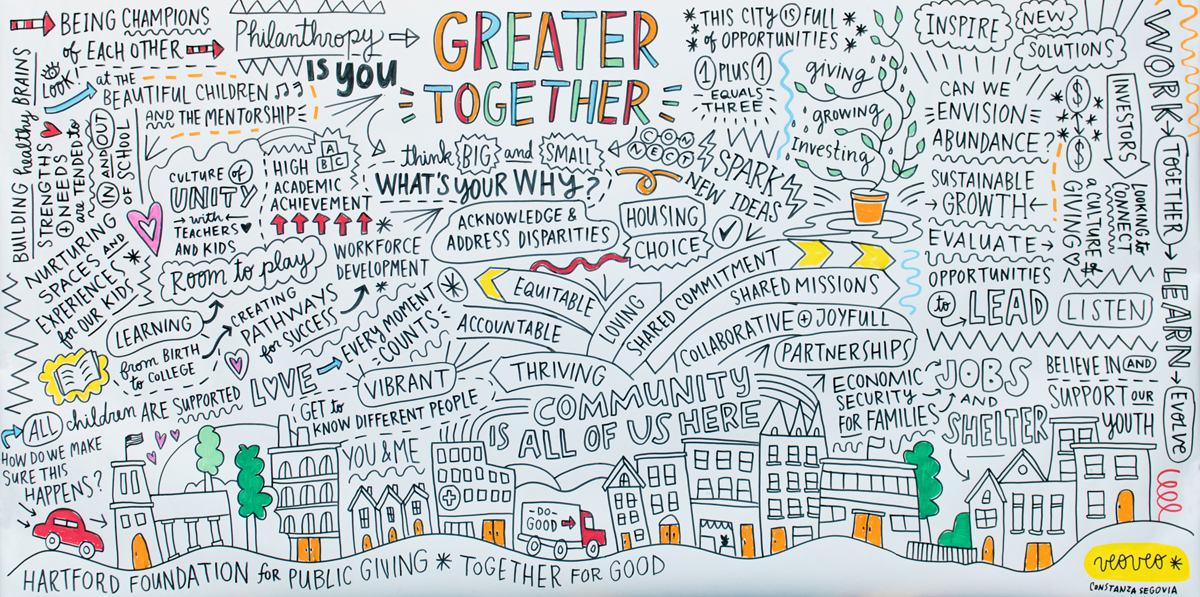 BEING CHAMPIONS
of EACH OTHER
Philanthropy
IS YOU
GREATER
TOGETHER
* THIS CITY IS FULL
* of OPPORTUNITIES *
1 PLUS 1
EQUALS
THREE
giving
growing
investing
INSPIRE
NEW
SOLUTIONS
WORK
TOGETHER
LEARN
EVOLVE
BUILDING healthy BRAINS
LOOK!
at the
BEAUTIFUL CHILDREN
AND THE MENTORSHIP
STRENGTHS
+ NEEDS
are TENDED to
IN AND OUT
OF SCHOOL
CULTURE of
UNITY
with
TEACHERS
AND KIDS
A
B C
HIGH
ACADEMIC
ACHIEVEMENT
think BIG and SMALL
WHAT'S YOUR WHY?
CONNECT
SPARK
NEW IDEAS
CAN WE
ENVISION
ABUNDANCE?
SUSTAINABLE
GROWTH
EVALUATE
OPPORTUNITIES
to LEAD
LISTEN
$
$
GIVING
a CULTURE of
INVESTORS
LOOKING to
CONNECT
NURTURING
SPACES AND
EXPERIENCES *
for OUR KIDS
Room to play
WORKFORCE
DEVELOPMENT
ACKNOWLEDGE &
ADDRESS DISPARITIES
HOUSING
CHOICE
LEARNING
from BIRTH
to COLLEGE
CREATING
PATHWAYS
for SUCCESS
EVERY MOMENT
COUNTS
EQUITABLE
ACCOUNTABLE
LOVING
SHARED COMMITMENT
SHARED MISSIONS
COLLABORATIVE + JOYFULL
PARTNERSHIPS
THRIVING
VIBRANT
LOVE
ALL children ARE SUPPORTED
GET to
KNOW DIFFERENT PEOPLE
YOU & ME
COMMUNITY
IS ALL OF US HERE
ECONOMIC
SECURITY
for FAMILIES
JOBS
AND
SHELTER
BELIEVE IN AND
SUPPORT OUR
YOUTH
HOW DO WE MAKE
SURE THIS
HAPPENS?
-DO-
GOOD
HARTFORD FOUNDATION for PUBLIC GIVING * TOGETHER FOR GOOD
veoveo *
CONSTANZA SEGOVIA